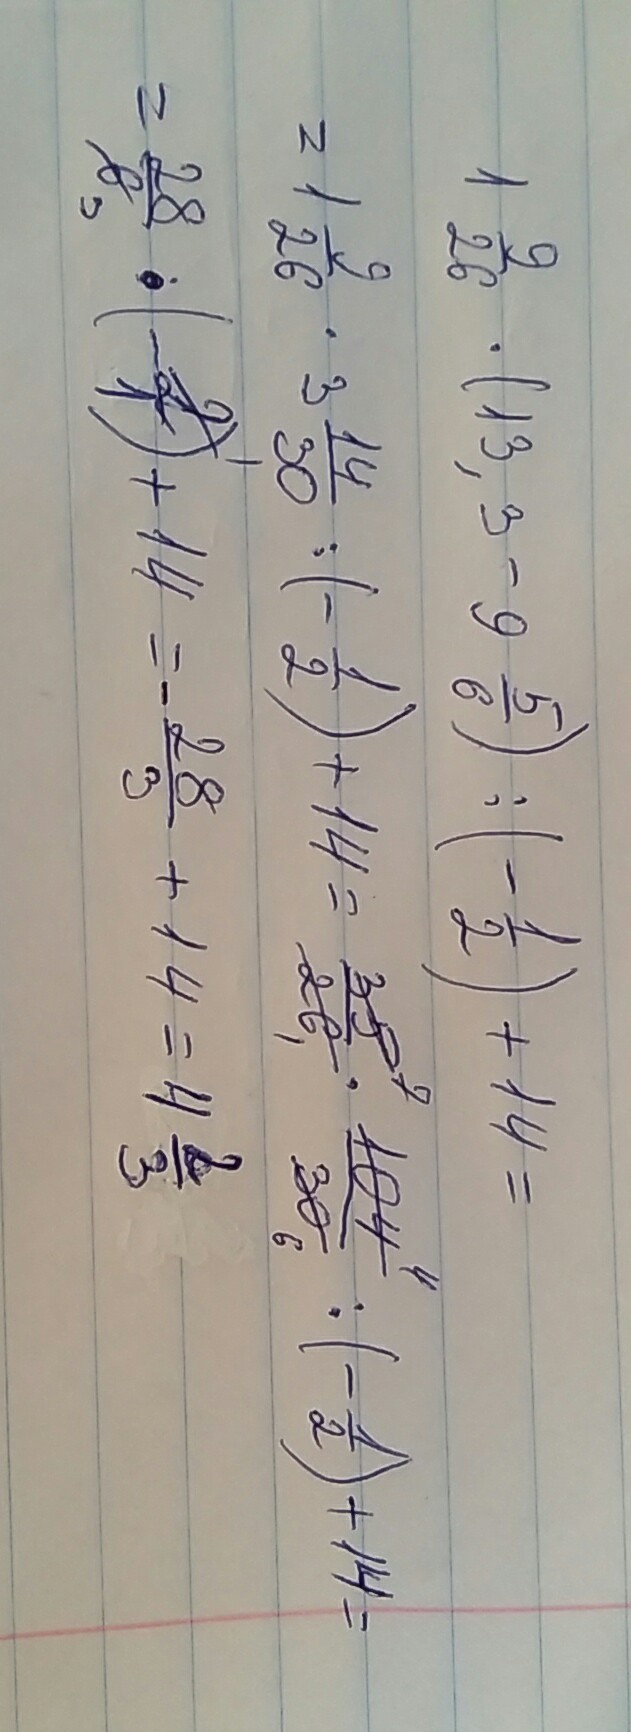 1 9/26 · (13,3 - 9 5/6) : (- 1/2) + 14 =
= 1 9/26 · 3 14/30 : (- 1/2) + 14 = 35/26 · 104/30 : (- 1/2) + 14 =
= 28/6 · (- 2/1) + 14 = - 28/3 + 14 = 4 2/3